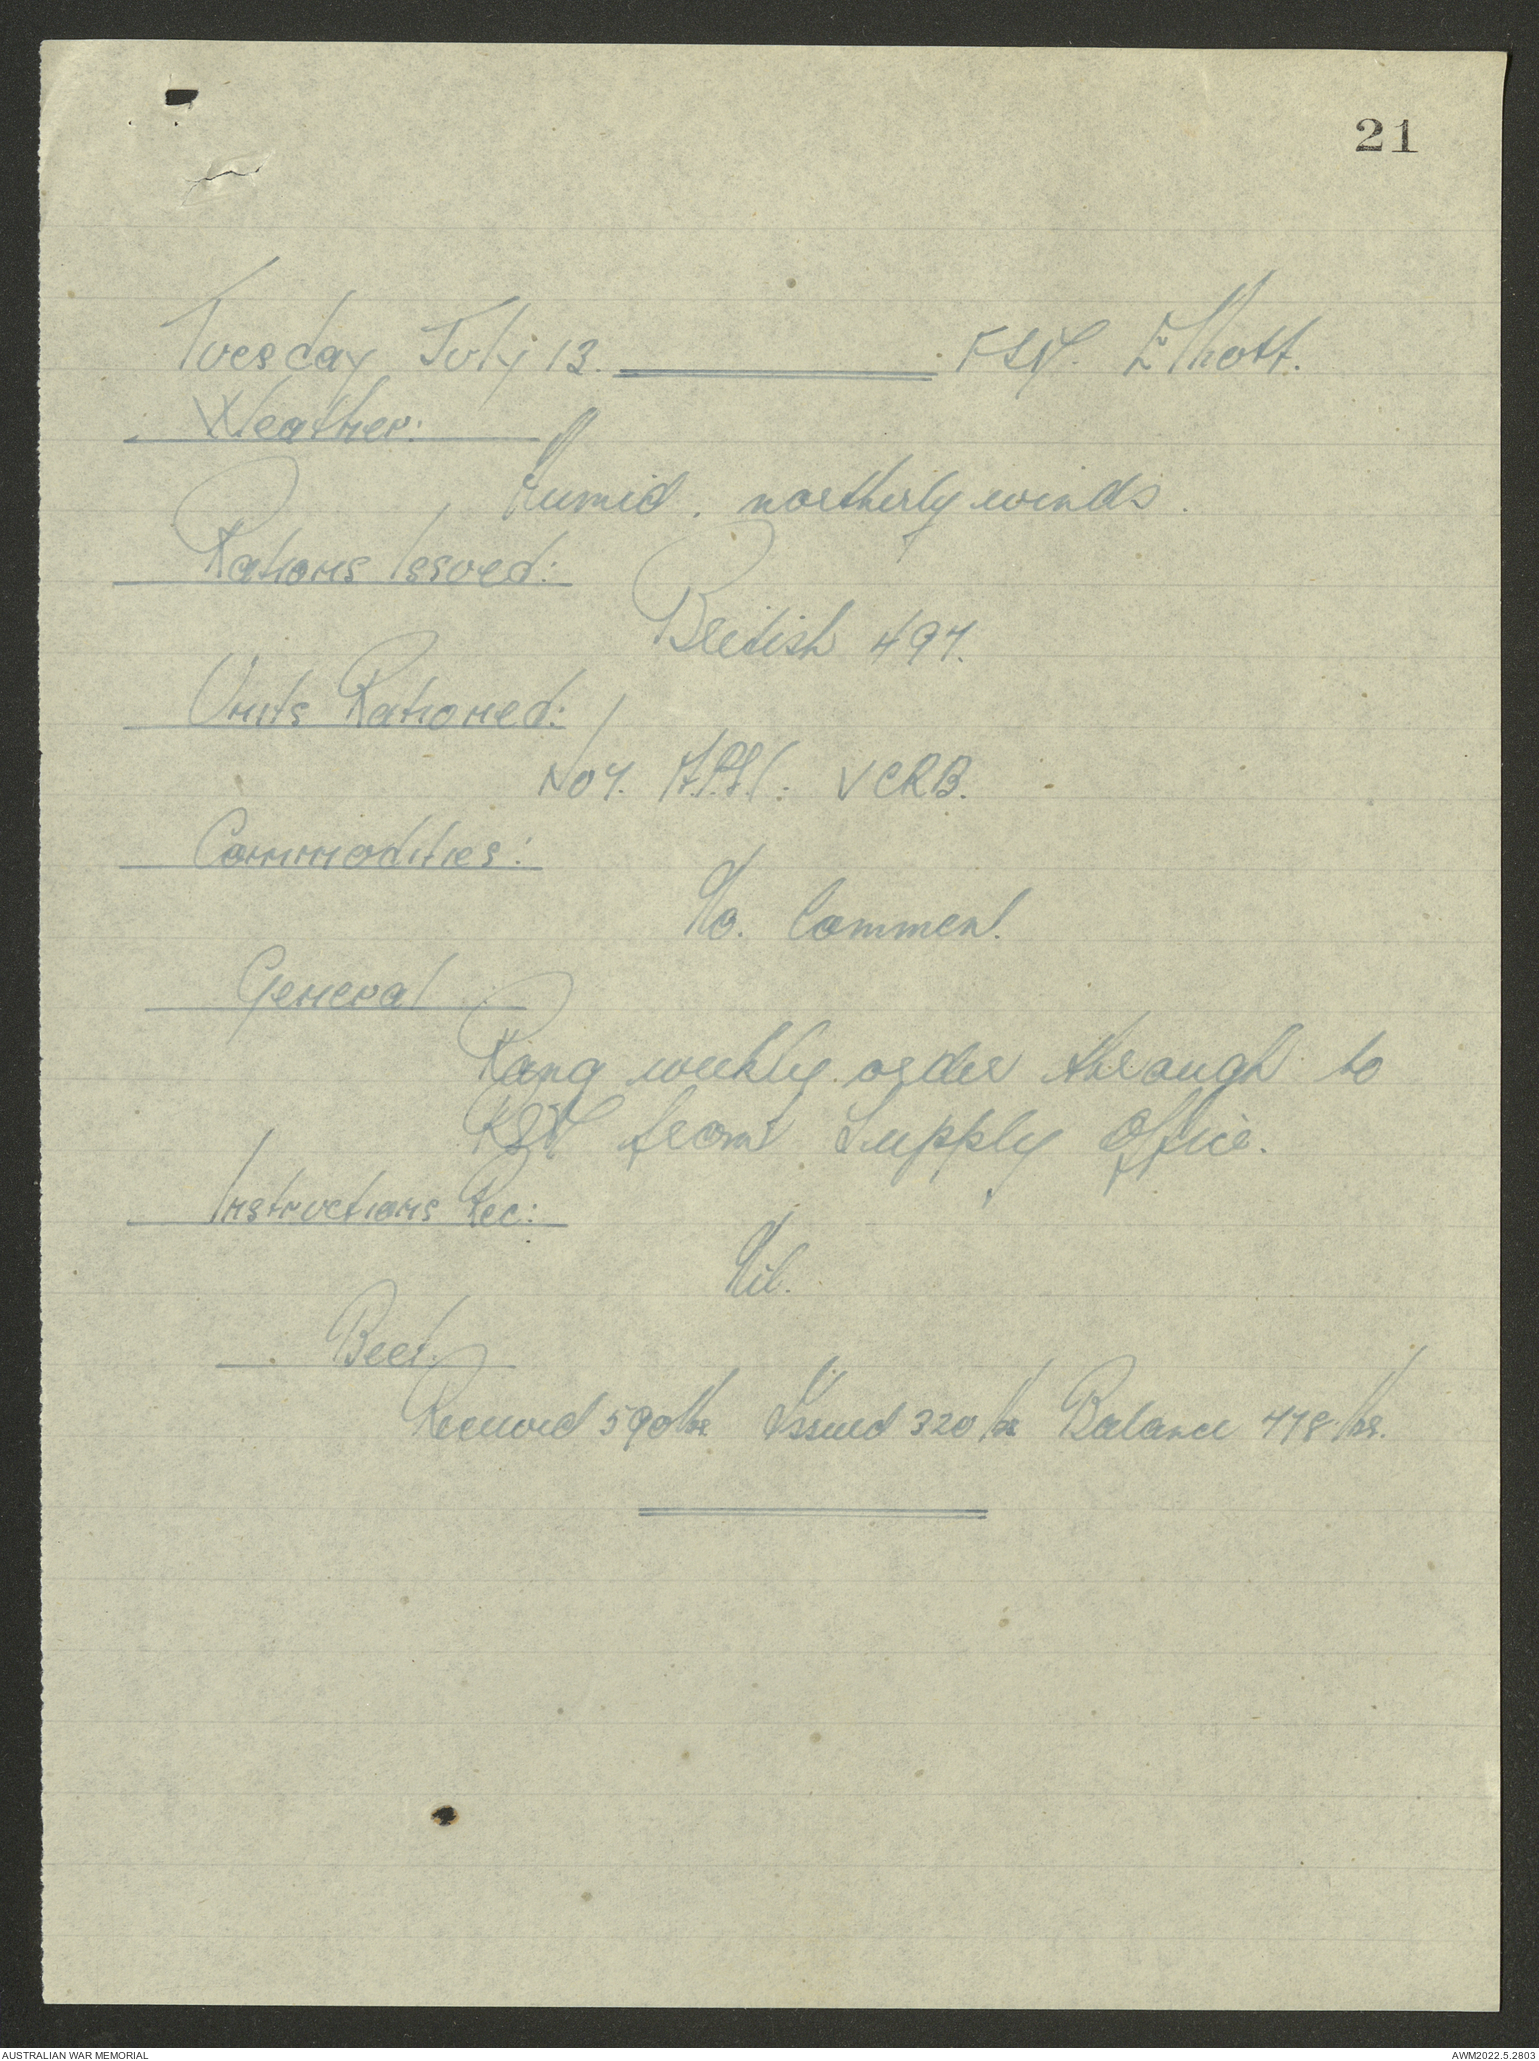 21
Tuesday July 13. FSD. Elliott.
Weather:
Humid. northerly winds.
Rations Issued:
British 497.
Units Rationed:
No 4. VCRB.
Commodities:
No. Comment.
General
Rang weekly order through to
from Supply Office.
Instructions Rec:
Nil.
Beef.
Received 590 lbs. Issued 320 lbs Balance 478 lbs.
AUSTRALIAN WAR MEMORIAL
AWM2022.5.2803